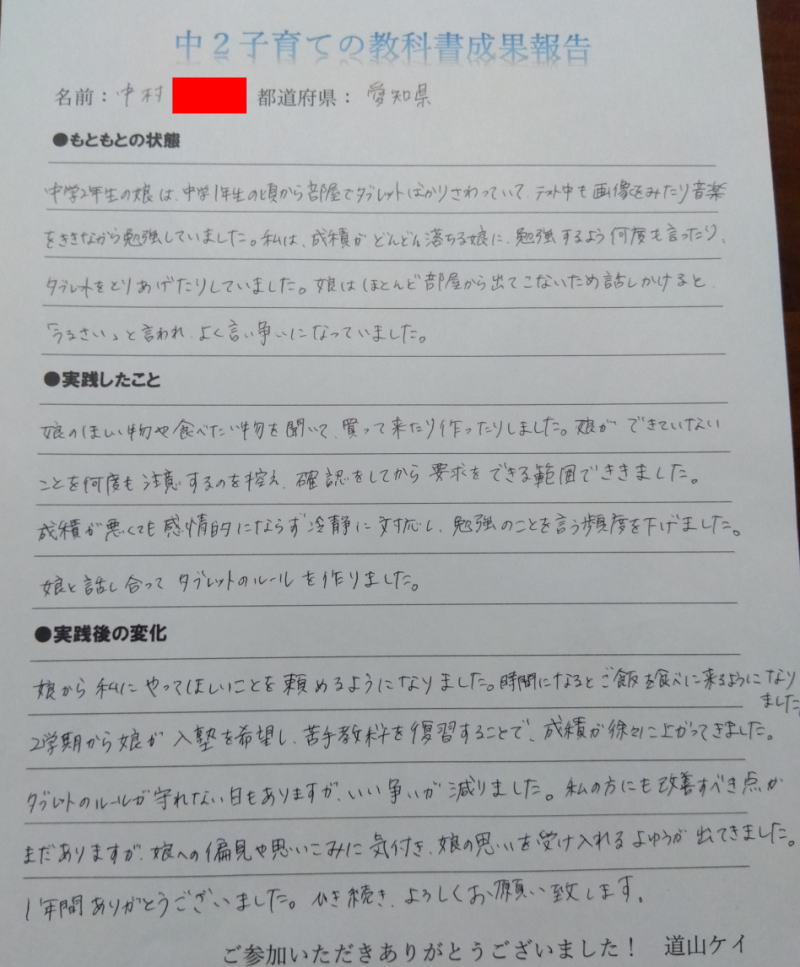 中2子育ての教科書成果報告
名前：中村 都道府県：愛知県
●もともとの状態
中学2年生の娘は、中学1年生の頃から部屋でタブレットばかりさわっていて、テスト中も画像をみたり音楽
をききながら勉強していました。私は、成績がどんどん落ちる娘に、勉強するよう何度も言ったり、
タブレットをとりあげたりしていました。娘はほとんど部屋から出てこないため話しかけると、
「うるさい」と言われ、よく言い争いになっていました。
●実践したこと
娘のほしい物や食べたい物を聞いて、買って来たり作ったりしました。娘ができていない
ことを何度も注意するのを控え、確認をしてから要求をできる範囲でききました。
成績が悪くても感情的にならず冷静に対応し、勉強のことを言う頻度を下げました。
娘と話し合ってタブレットのルールを作りました。
●実践後の変化
娘から私にやってほしいことを頼めるようになりました。時間になるとご飯を食べに来るようになり
ました。
2学期から娘が入塾を希望し、苦手教科を復習することで、成績が徐々に上がってきました。
タブレットのルールが守れない日もありますが、いい争いが減りました。私の方にも改善すべき点が
まだありますが、娘への偏見や思いこみに気付き、娘の思いを受け入れるよゆうが出てきました。
1年間ありがとうございました。ひき続き、よろしくお願い致します。
ご参加いただきありがとうございました！ 道山ケイ